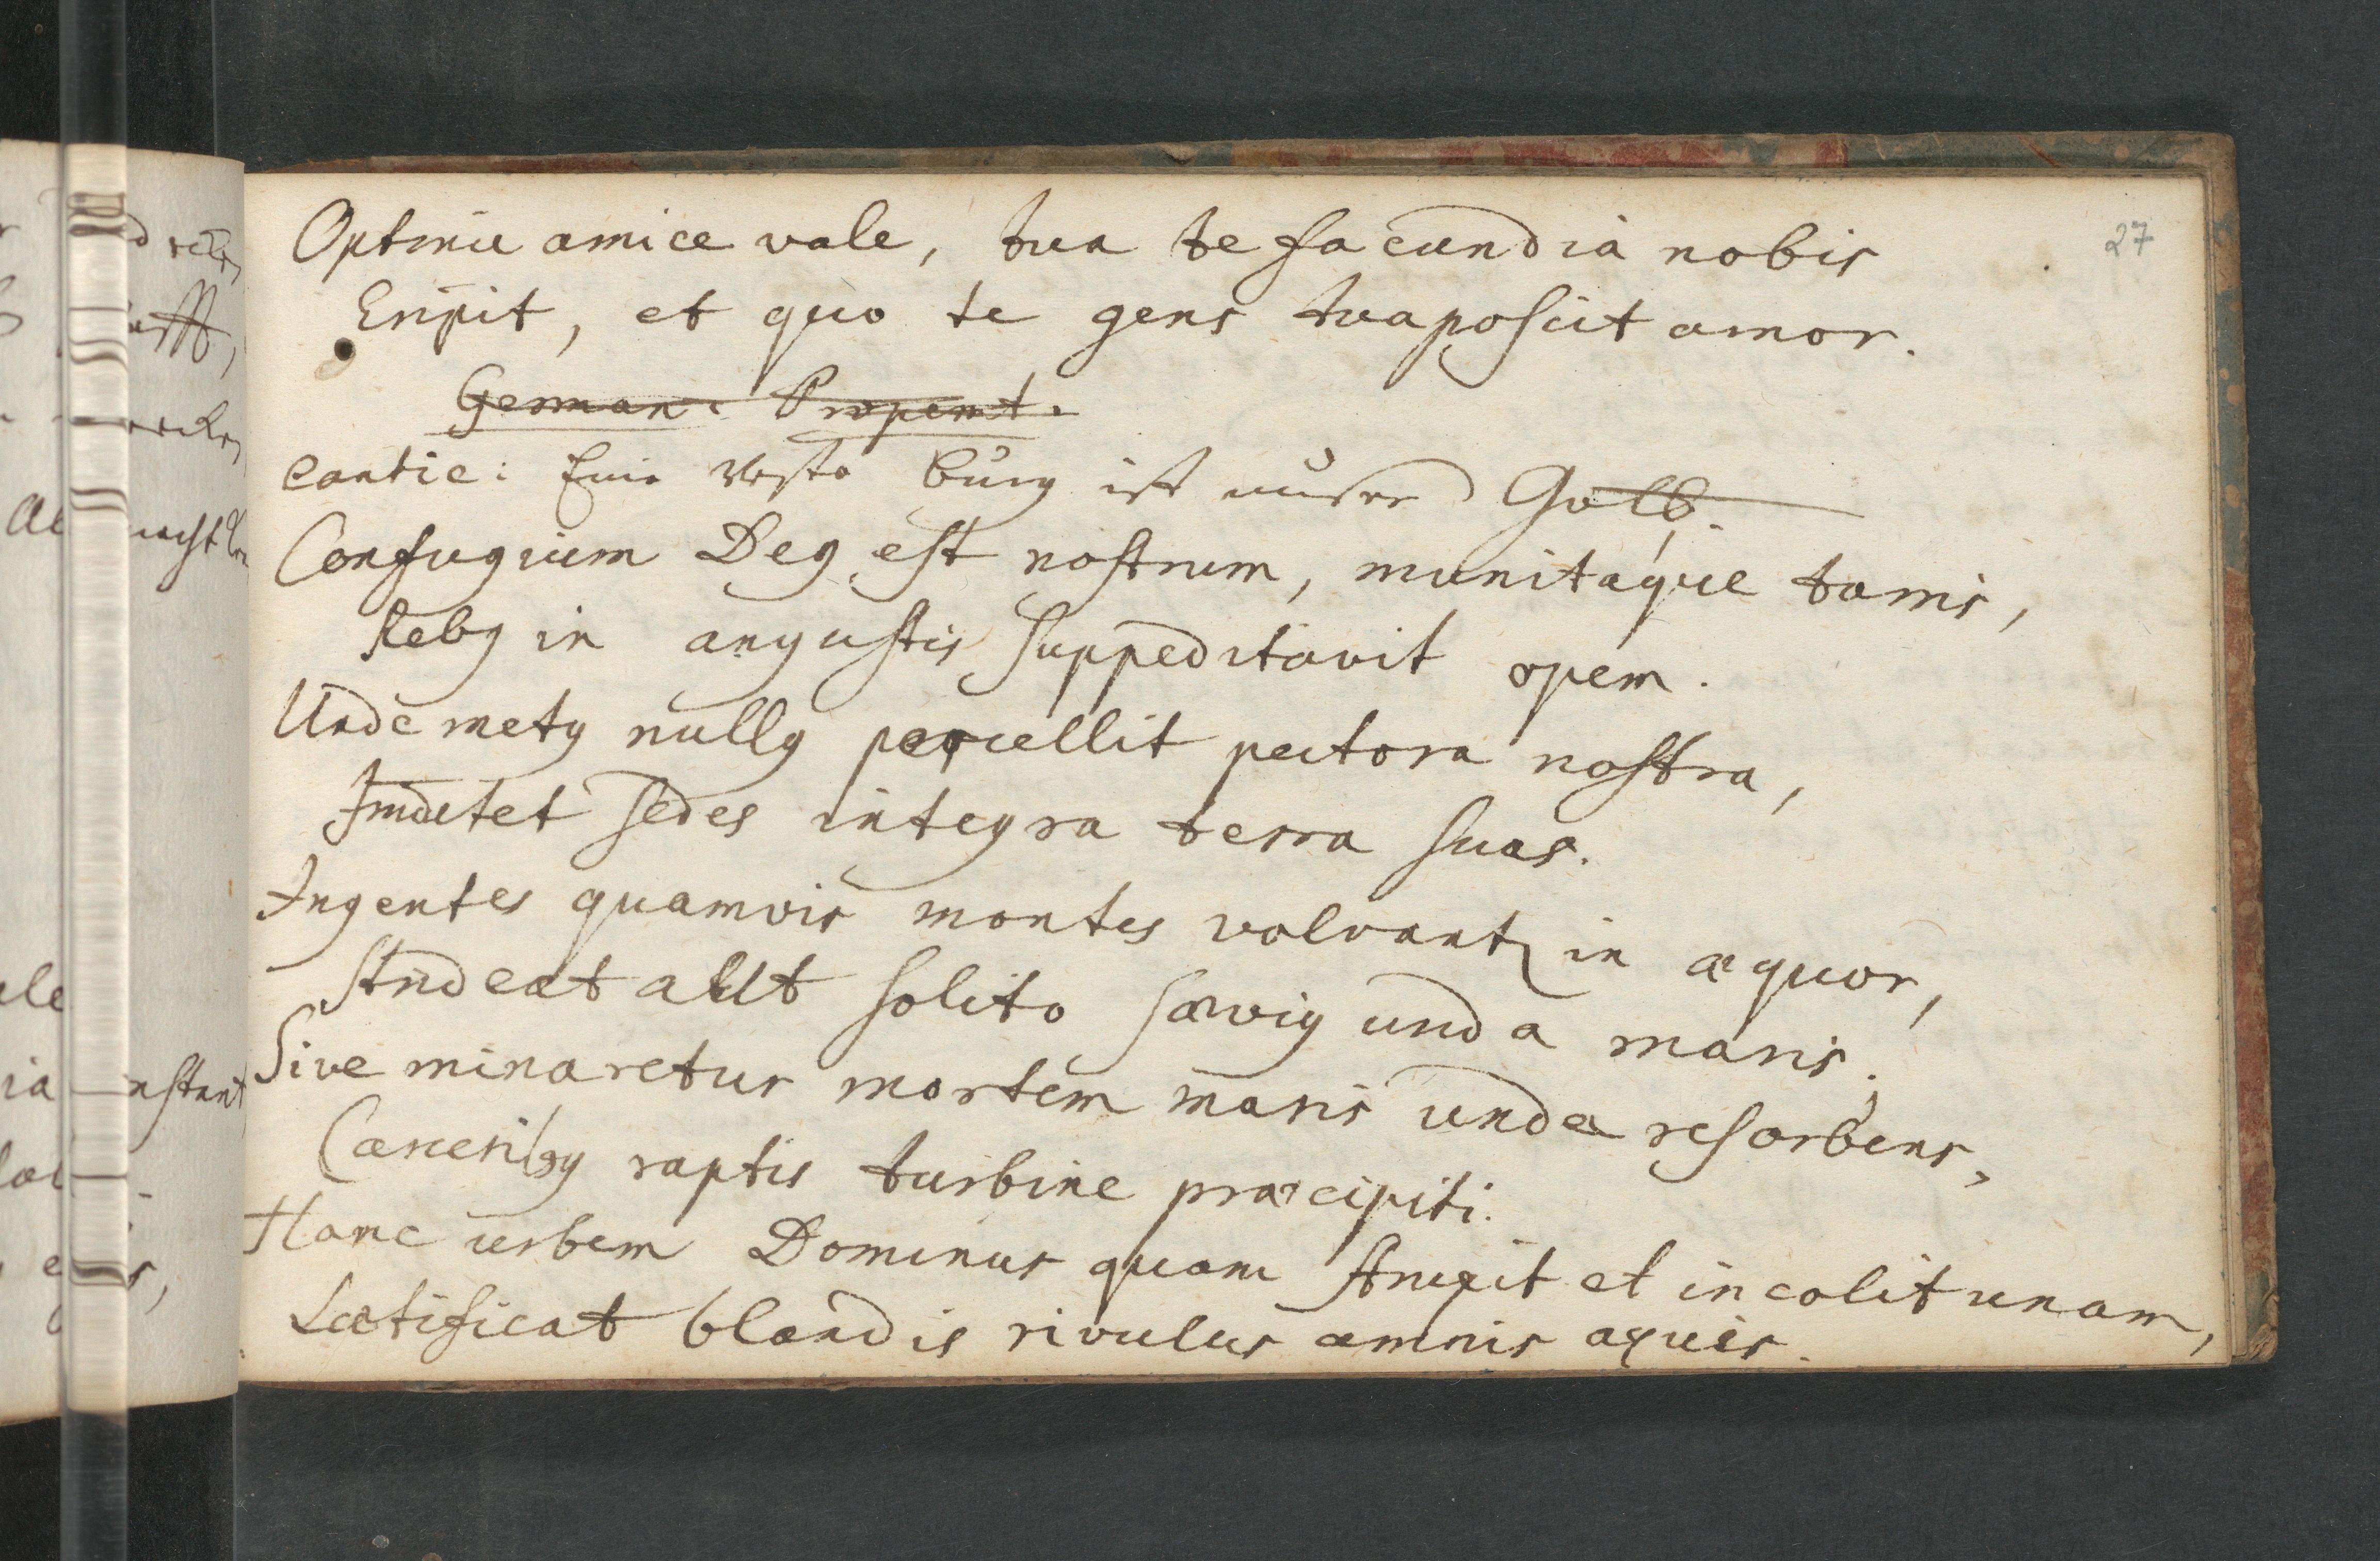 27
Optime amice vale, tua te facundia nobis
Eripit, et quo te gens tua poscit amor.
German: Propemt.
Cantic: Ein veste Burg ist unser Gott.
Confugium Deus est nostrum, munitaque turris,
Rebus in angustis suppeditavit opem.
Unde metus nullus percellit pectora nostra,
sedes integra terra suas.
Ingentes quamvis montes volvantur in æquor,
Strideat aut solito sævius unda maris.
Sive minaretur mortem maris unda resorbens,
Carceribus raptis turbine præcipiti.
Hanc urbem Dominus quam struxit et incolit unam,
Lætificat blandis rivulus amnis aquis.